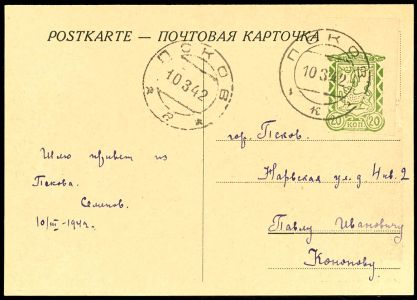 POSTKARTE — ПОЧТОВАЯ КАРТОЧКА
ПСКОВ
10 3 42
ПСКОВ
10 3 42
20 КОП 20
гор. Псков.
Нарвская ул. д. 4 кв. 2
Павлу Ивановичу
Кононову.
Шлю привет из
Пскова.
Семенов.
10/III-1942.